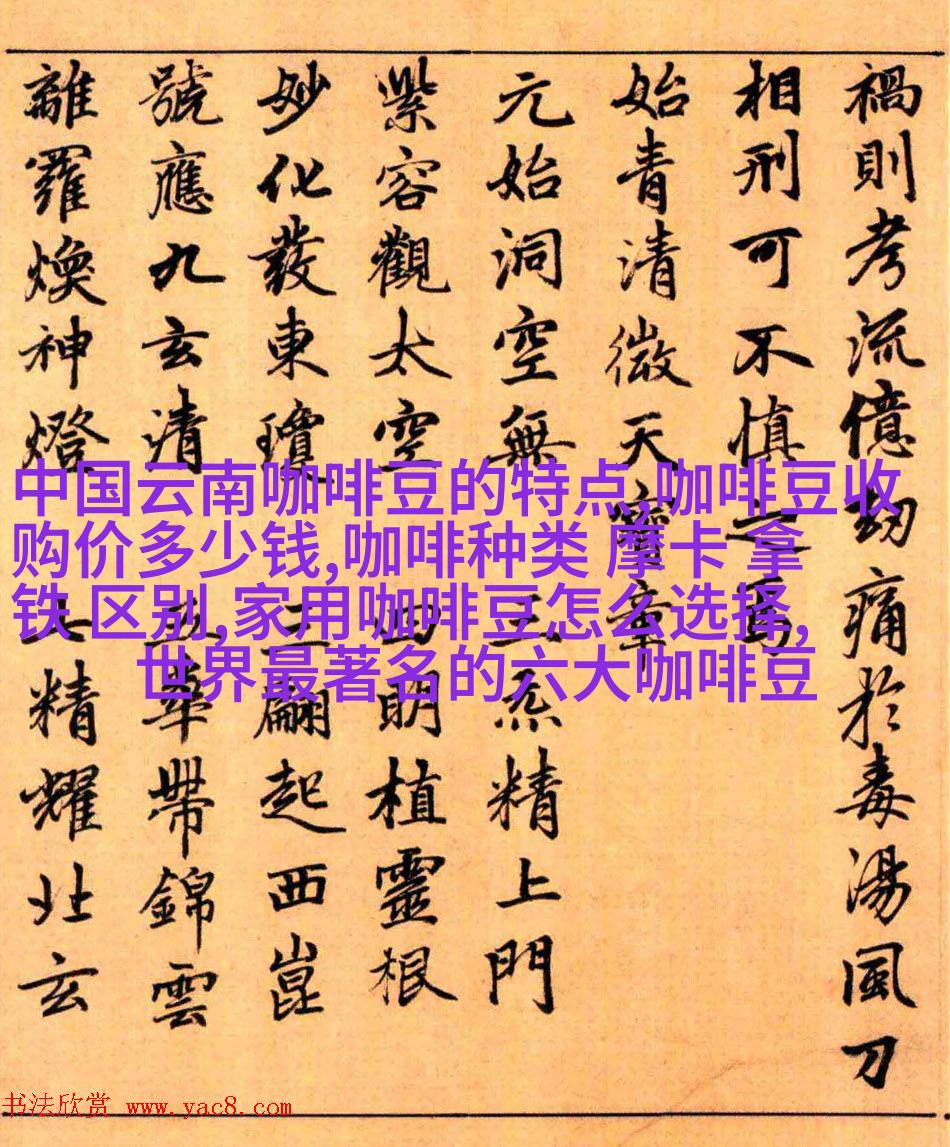 禍則考流億劫痛於毒湯風刀
相刑可不慎之焉
始青清微天寶章
元始洞空無 三炁精上門
紫容觀太空 四明植靈根
妙化發東瓊 翮起西崑
號應九玄清 華帶錦雲
離羅煥神燈 精耀北玄
中国云南咖啡豆的特点,咖啡豆收
购价多少钱,咖啡种类 摩卡 拿
铁 区别,家用咖啡豆怎么选择,
世界最著名的六大咖啡豆
书法欣赏 www.yac8.com